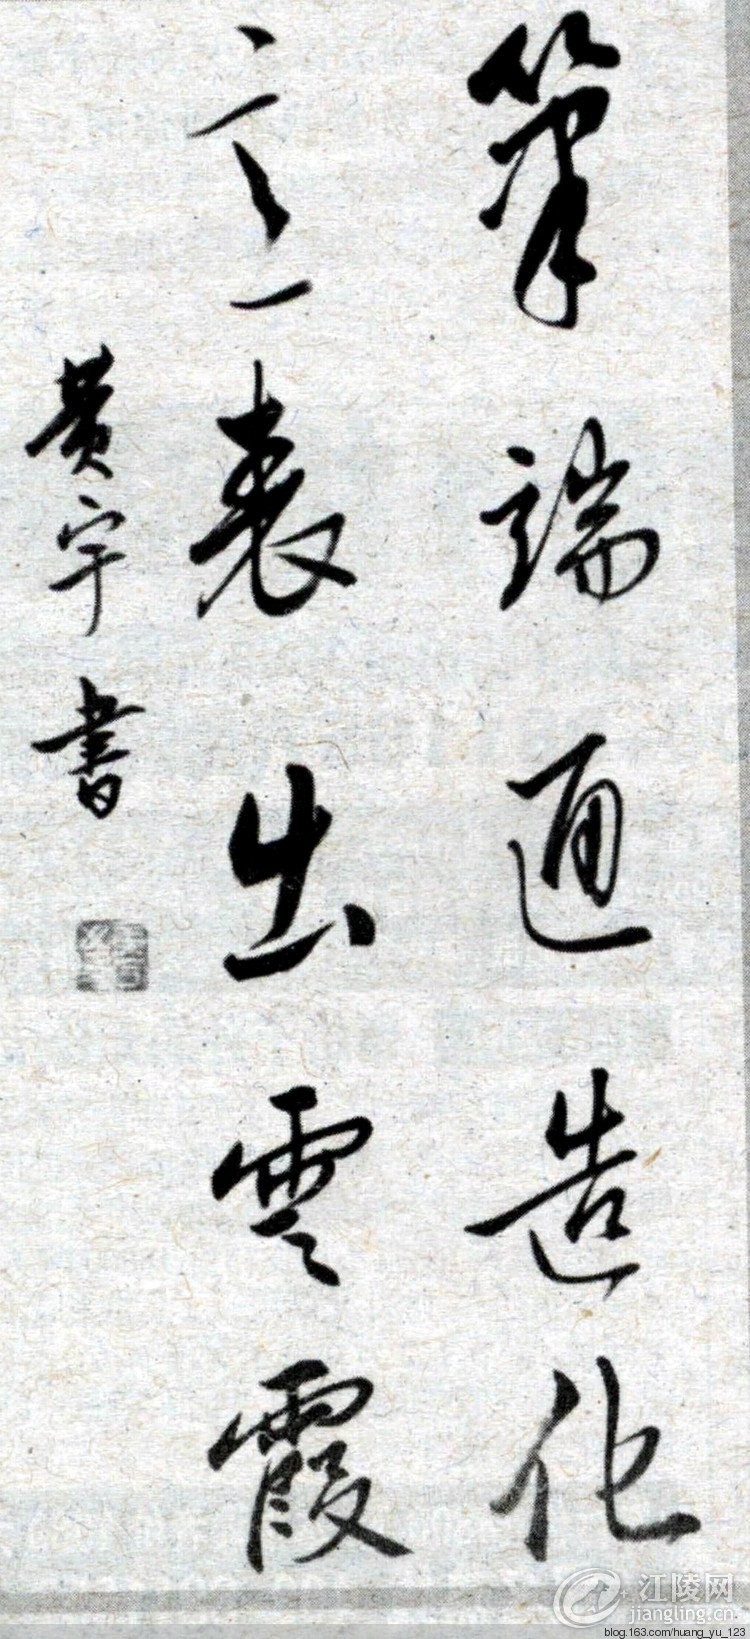 筆端通造化
意表出雲霞
黄宇書
江陵网
jiangling.cn
blog.163.com/huang_yu_123